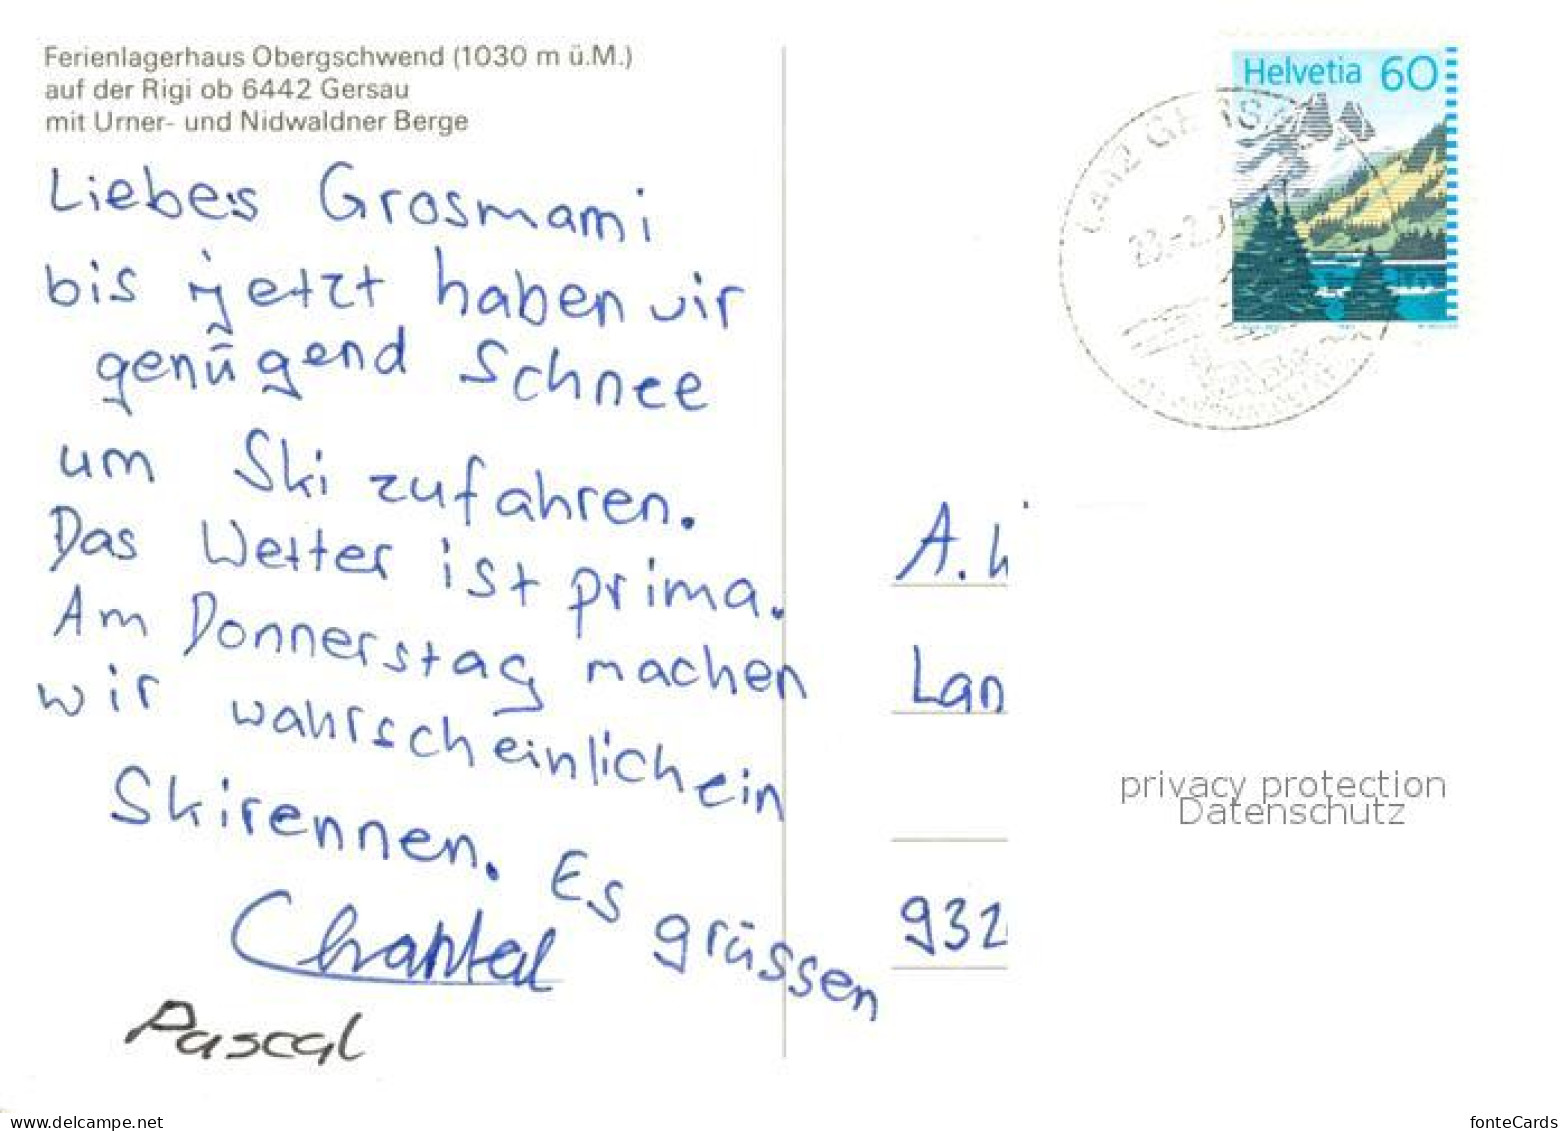 Ferienlagerhaus Obergschwend (1030 m ü.M.)
auf der Rigi ob 6442 Gersau
mit Urner- und Nidwaldner Berge
Liebes Grosmami
bis jetzt haben wir
genügend Schnee
um Ski zufahren.
Das Wetter ist prima.
Am Donnerstag machen
wir wahrscheinlich ein
Skirennen. Es grüssen
Chantal
Pascal
Helvetia 60
A.
Lan
932
privacy protection
Datenschutz
www.delcampe.net
fonteCards